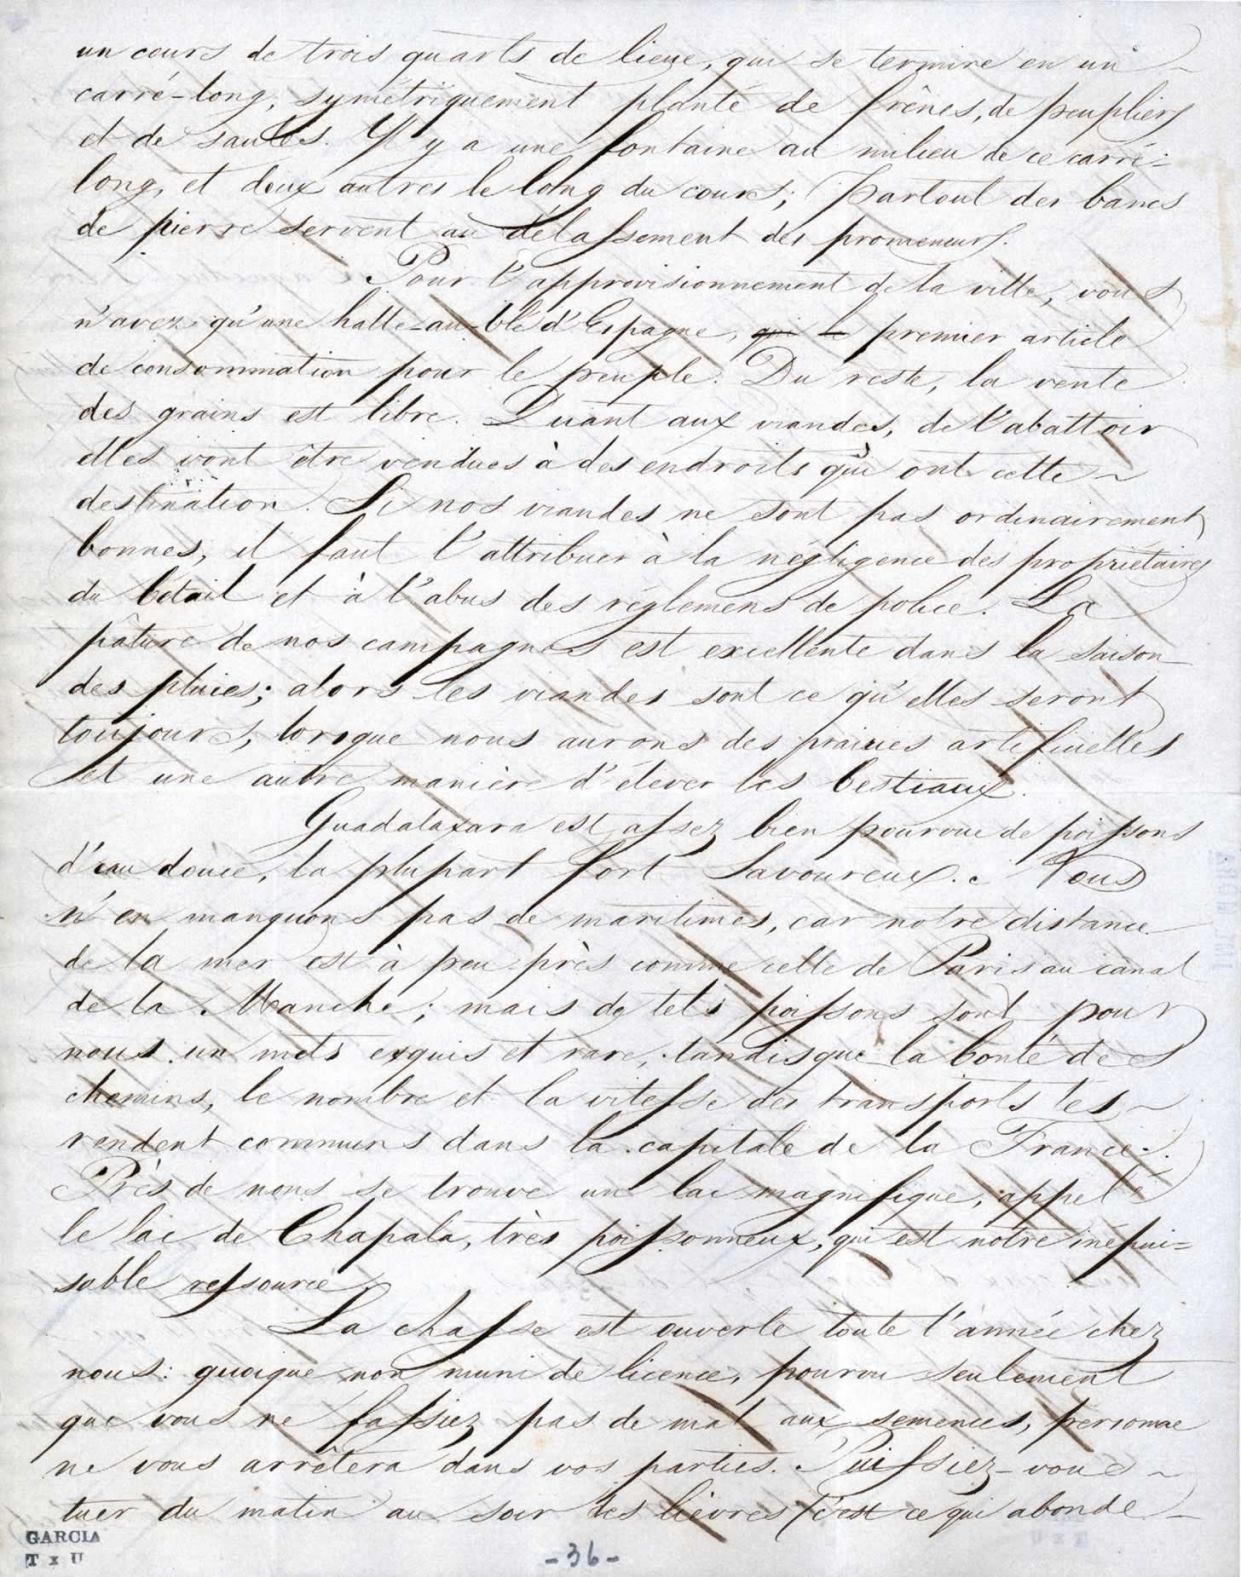 un cours de trois quarts de lieue, qui se termine en un
carré-long, symétriquement planté de frênes, de peupliers
et de saules. Il y a une fontaine au milieu de ce carré-
long, et deux autres le long du cours; Partout des bancs
de pierre servent au délassement des promeneurs.
Pour l'approvisionnement de la ville, vous
n'avez qu'une halle-au-blé d'Espagne, premier article
de consommation pour le peuple. Du reste, la vente
des grains est libre. Quant aux viandes, de l'abattoir
elles vont être vendues à des endroits qui ont cette
destination. Si nos viandes ne sont pas ordinairement
bonnes, il faut l'attribuer à la négligence des propriétaires
du bétail et à l'abus des réglemens de police. La
pâture de nos campagnes est excellente dans la saison
des pluies; alors les viandes sont ce qu'elles seront
toujours, lorsque nous aurons des prairies artificielles
et une autre manière d'élever les bestiaux.
Guadalaxara est assez bien pourvue de poissons
d'eau douce, la plupart fort savoureux. Nous
n'en manquons pas de maritimes, car notre distance
de la mer est à peu près comme celle de Paris au canal
de la Manche; mais de tels poissons sont pour
nous un mets exquis et rare, tandisque la bonté des
chemins, le nombre et la vitesse des transports les
rendent communs dans la capitale de la France.
Près de nous se trouve un lac magnifique, appelé
le lac de Chapala, très poissonneux, qui est notre inépui=
sable ressource.
La chasse est ouverte toute l'année chez
nous: quoique non muni de licence, pourvu seulement
que vous ne fassiez pas de mal aux semences, personne
ne vous arrêtera dans vos parties. Puissiez-vous
tuer du matin au soir des lièvres (c'est ce qui abonde
GARCIA
T x U
-36-